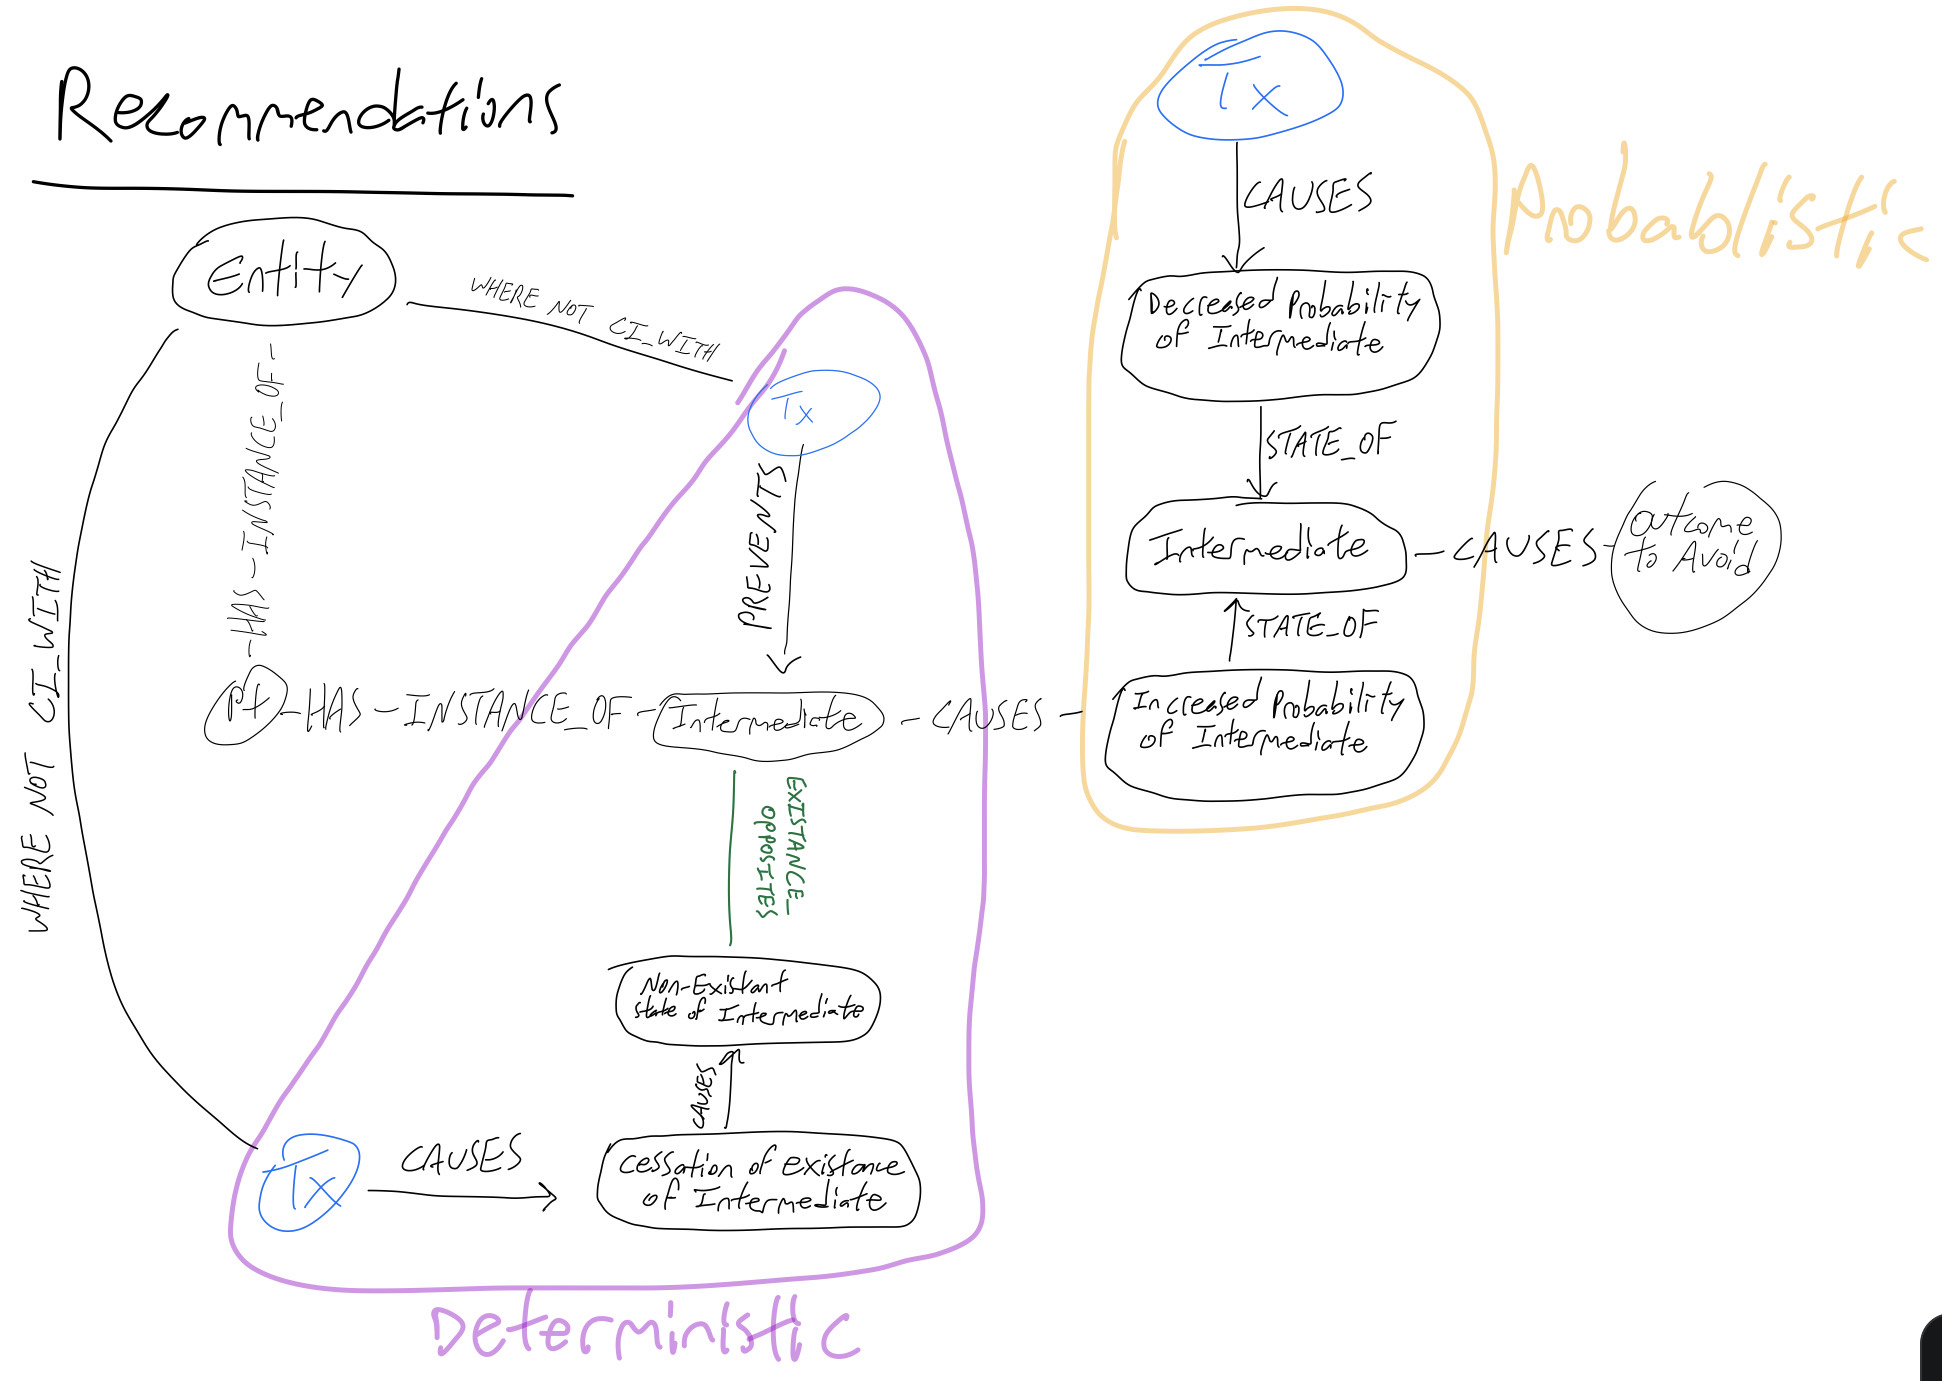 Recommendations
Entity
WHERE NOT CI_WITH
-HAS-INSTANCE_OF-
WHERE NOT CI_WITH
Tx
PREVENTS
Pt
-HAS-INSTANCE_OF-
Intermediate
-CAUSES-
EXISTANCE_
OPPOSITES
Non-Existant
state of Intermediate
CAUSES
Tx
CAUSES
Cessation of existance
of Intermediate
Deterministic
Tx
CAUSES
Decreased Probability
of Intermediate
STATE_OF
Intermediate
-CAUSES-
Outcome
to Avoid
STATE_OF
Increased Probability
of Intermediate
Probablistic